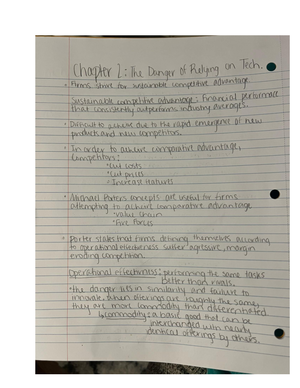 Chapter 2: The Danger of Relying on Tech.
• Firms strive for sustainable competitive advantage
Sustainable competitive advantage: financial performance
that consistently outperforms industry averages.
• Difficult to achieve due to the rapid emergence of new
products and new competitors.
• In order to achieve comparative advantage,
competitors:
• Cut costs
• Cut prices
• Increase features
• Michael Porters concepts are useful for firms
attempting to achieve comparative advantage
• Value Chain
• Five Forces
• Porter states that firms defining themselves according
to operational effectiveness suffer agressive, margin
eroding competition.
Operational effectiveness: performing the same tasks
better than rivals.
• the danger lies in similarity and failure to
innovate. When offerings are roughly the same,
they are more commodity than differentiated
commodity: a basic good that can be
interchanged with nearly
identical offerings by others.